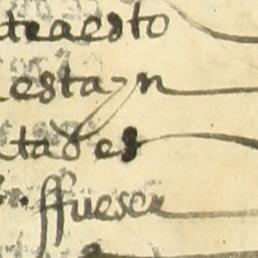 traesto
esta n
tades
ffuese